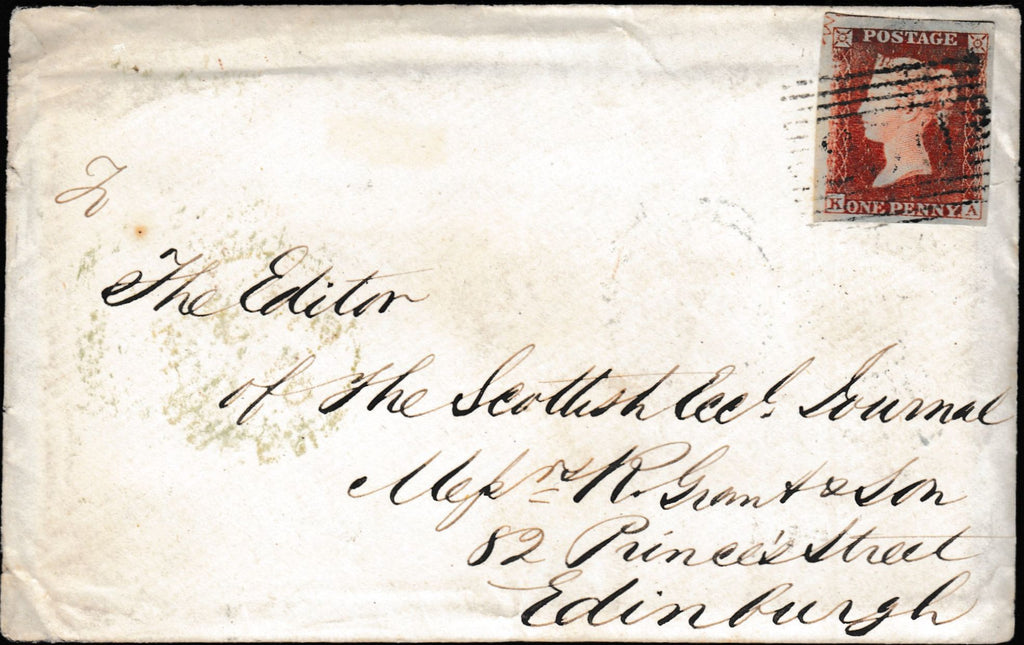 POSTAGE
K ONE PENNY A
To
The Editor
of The Scottish Eccl. Journal
Messrs R. Grant & Son
82 Prince's Street
Edinburgh